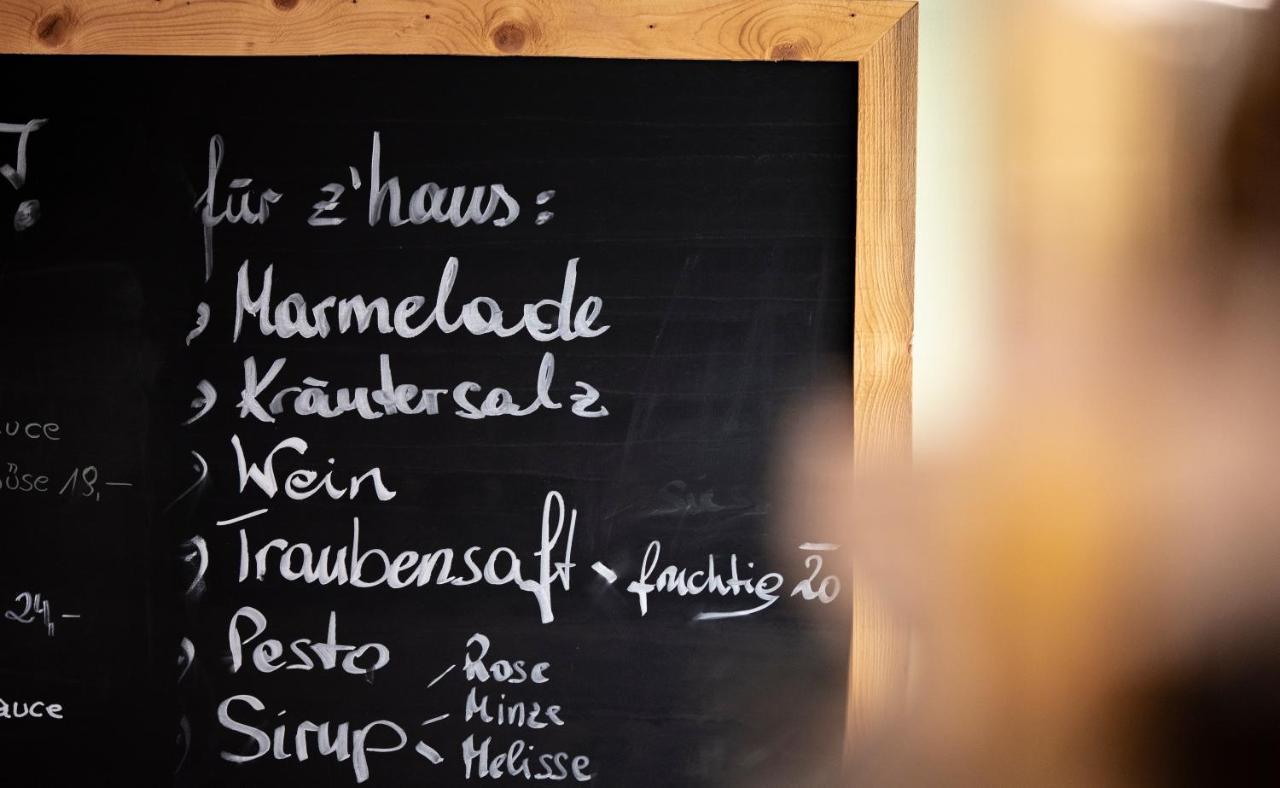 für z'haus:
Marmelade
Kräutersalz
Wein
Traubensaft - fruchtig 20
Pesto
Sirup - Rose
Minze
Melisse
uce
üse 19,-
24,-
auce